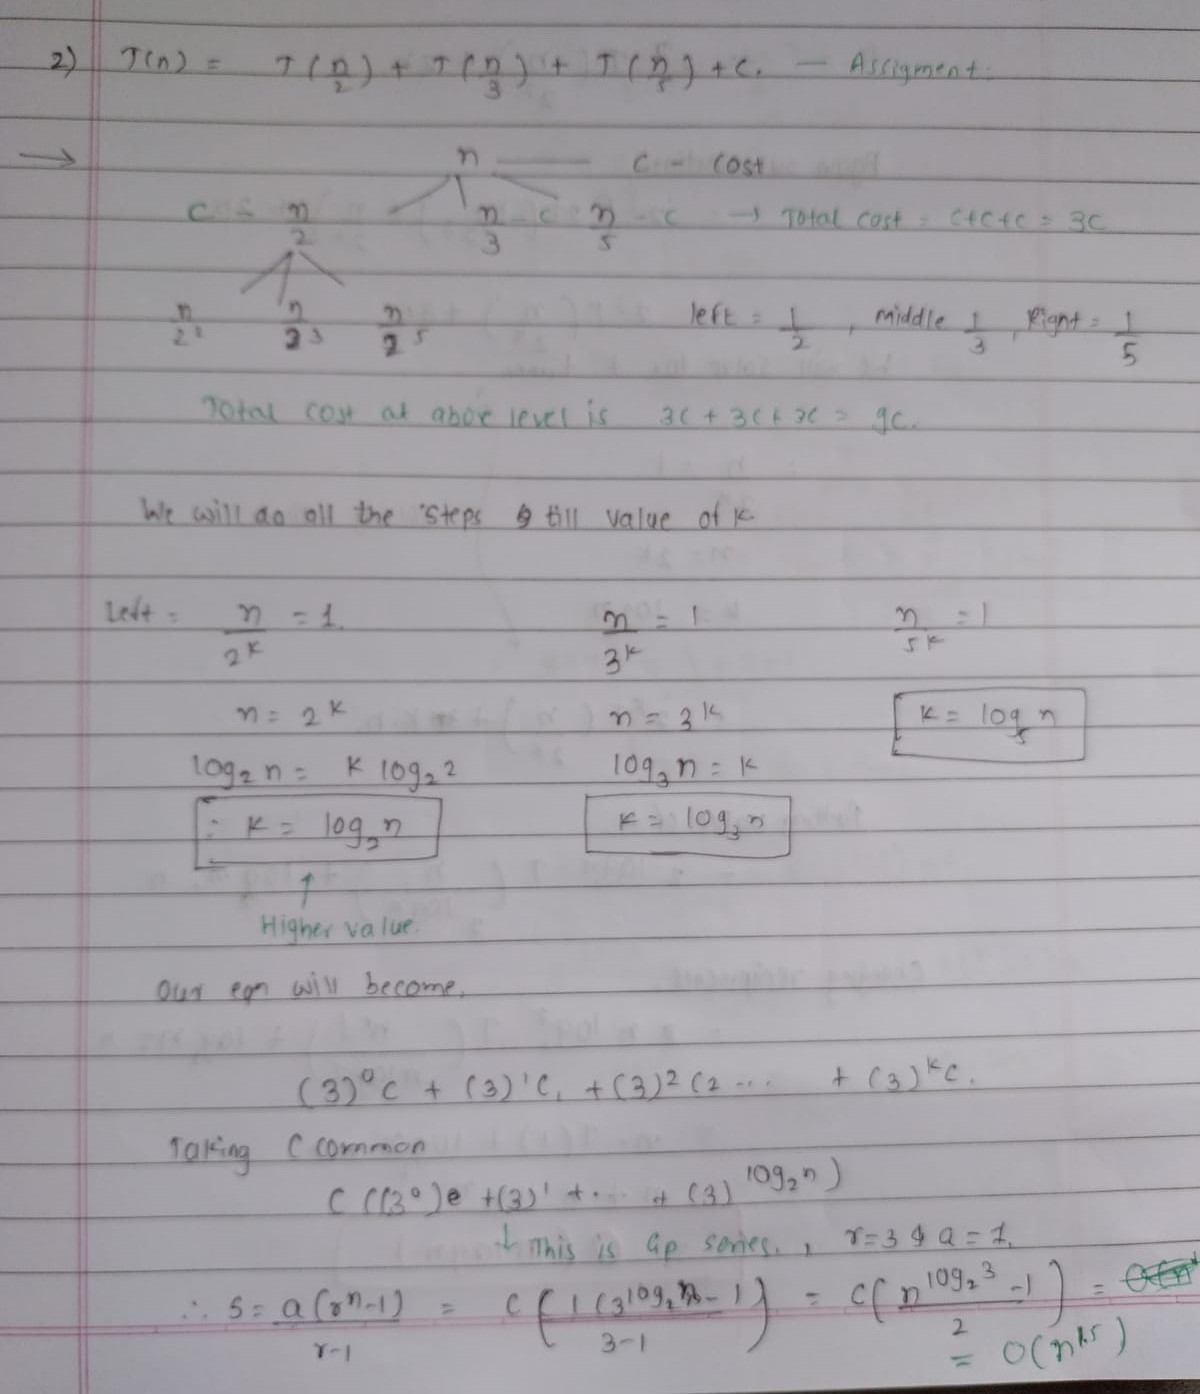 2) T(n) = T(n/2) + T(n/3) + T(n/5) + C. — Assigment.
→ n — C - cost
C - n/2 n/3 - C n/5 - C → Total cost = C+C+C = 3C
n/2² n/2 3 n/2 5 left = 1/2 , middle 1/3 , Right = 1/5
Total cost at above level is 3C + 3C + 3C = 9C.
We will do all the steps till value of K
Left = n/2^K = 1. n/3^K = 1 n/5^K = 1
n = 2^K n = 3^K K = log₅ n
log₂ n = K log₂ 2 log₃ n = K
∴ K = log₂ n K = log₃ n
↑
Higher value.
Our eqn will become,
(3)⁰C + (3)¹C, + (3)² C2 ... + (3)^K C.
Taking C common
C ((3⁰) + (3)¹ + .... + (3)^log₂n)
↓ This is Gp series. , r=3 & a = 1.
∴ S = a(rⁿ-1)/r-1 = C (1 (3^log₂n - 1)/3-1) = C (n^log₂3 - 1/2) =
= O(n^1.5)